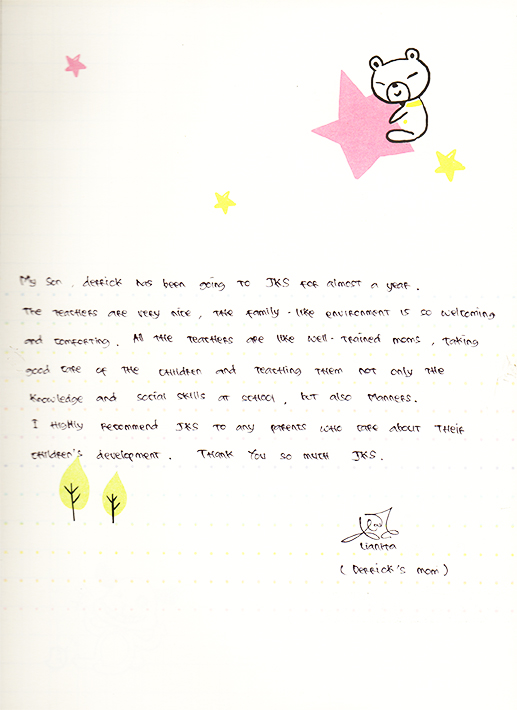 My son, derrick has been going to JKS for almost a year.
The teachers are very nice, the family-like environment is so welcoming
and comforting. All the teachers are like well-trained moms, taking
good care of the children and teaching them not only the
knowledge and social skills at school, but also manners.
I highly recommend JKS to any parents who care about their
children's development. Thank you so much JKS.
Lianita
(Derrick's mom)